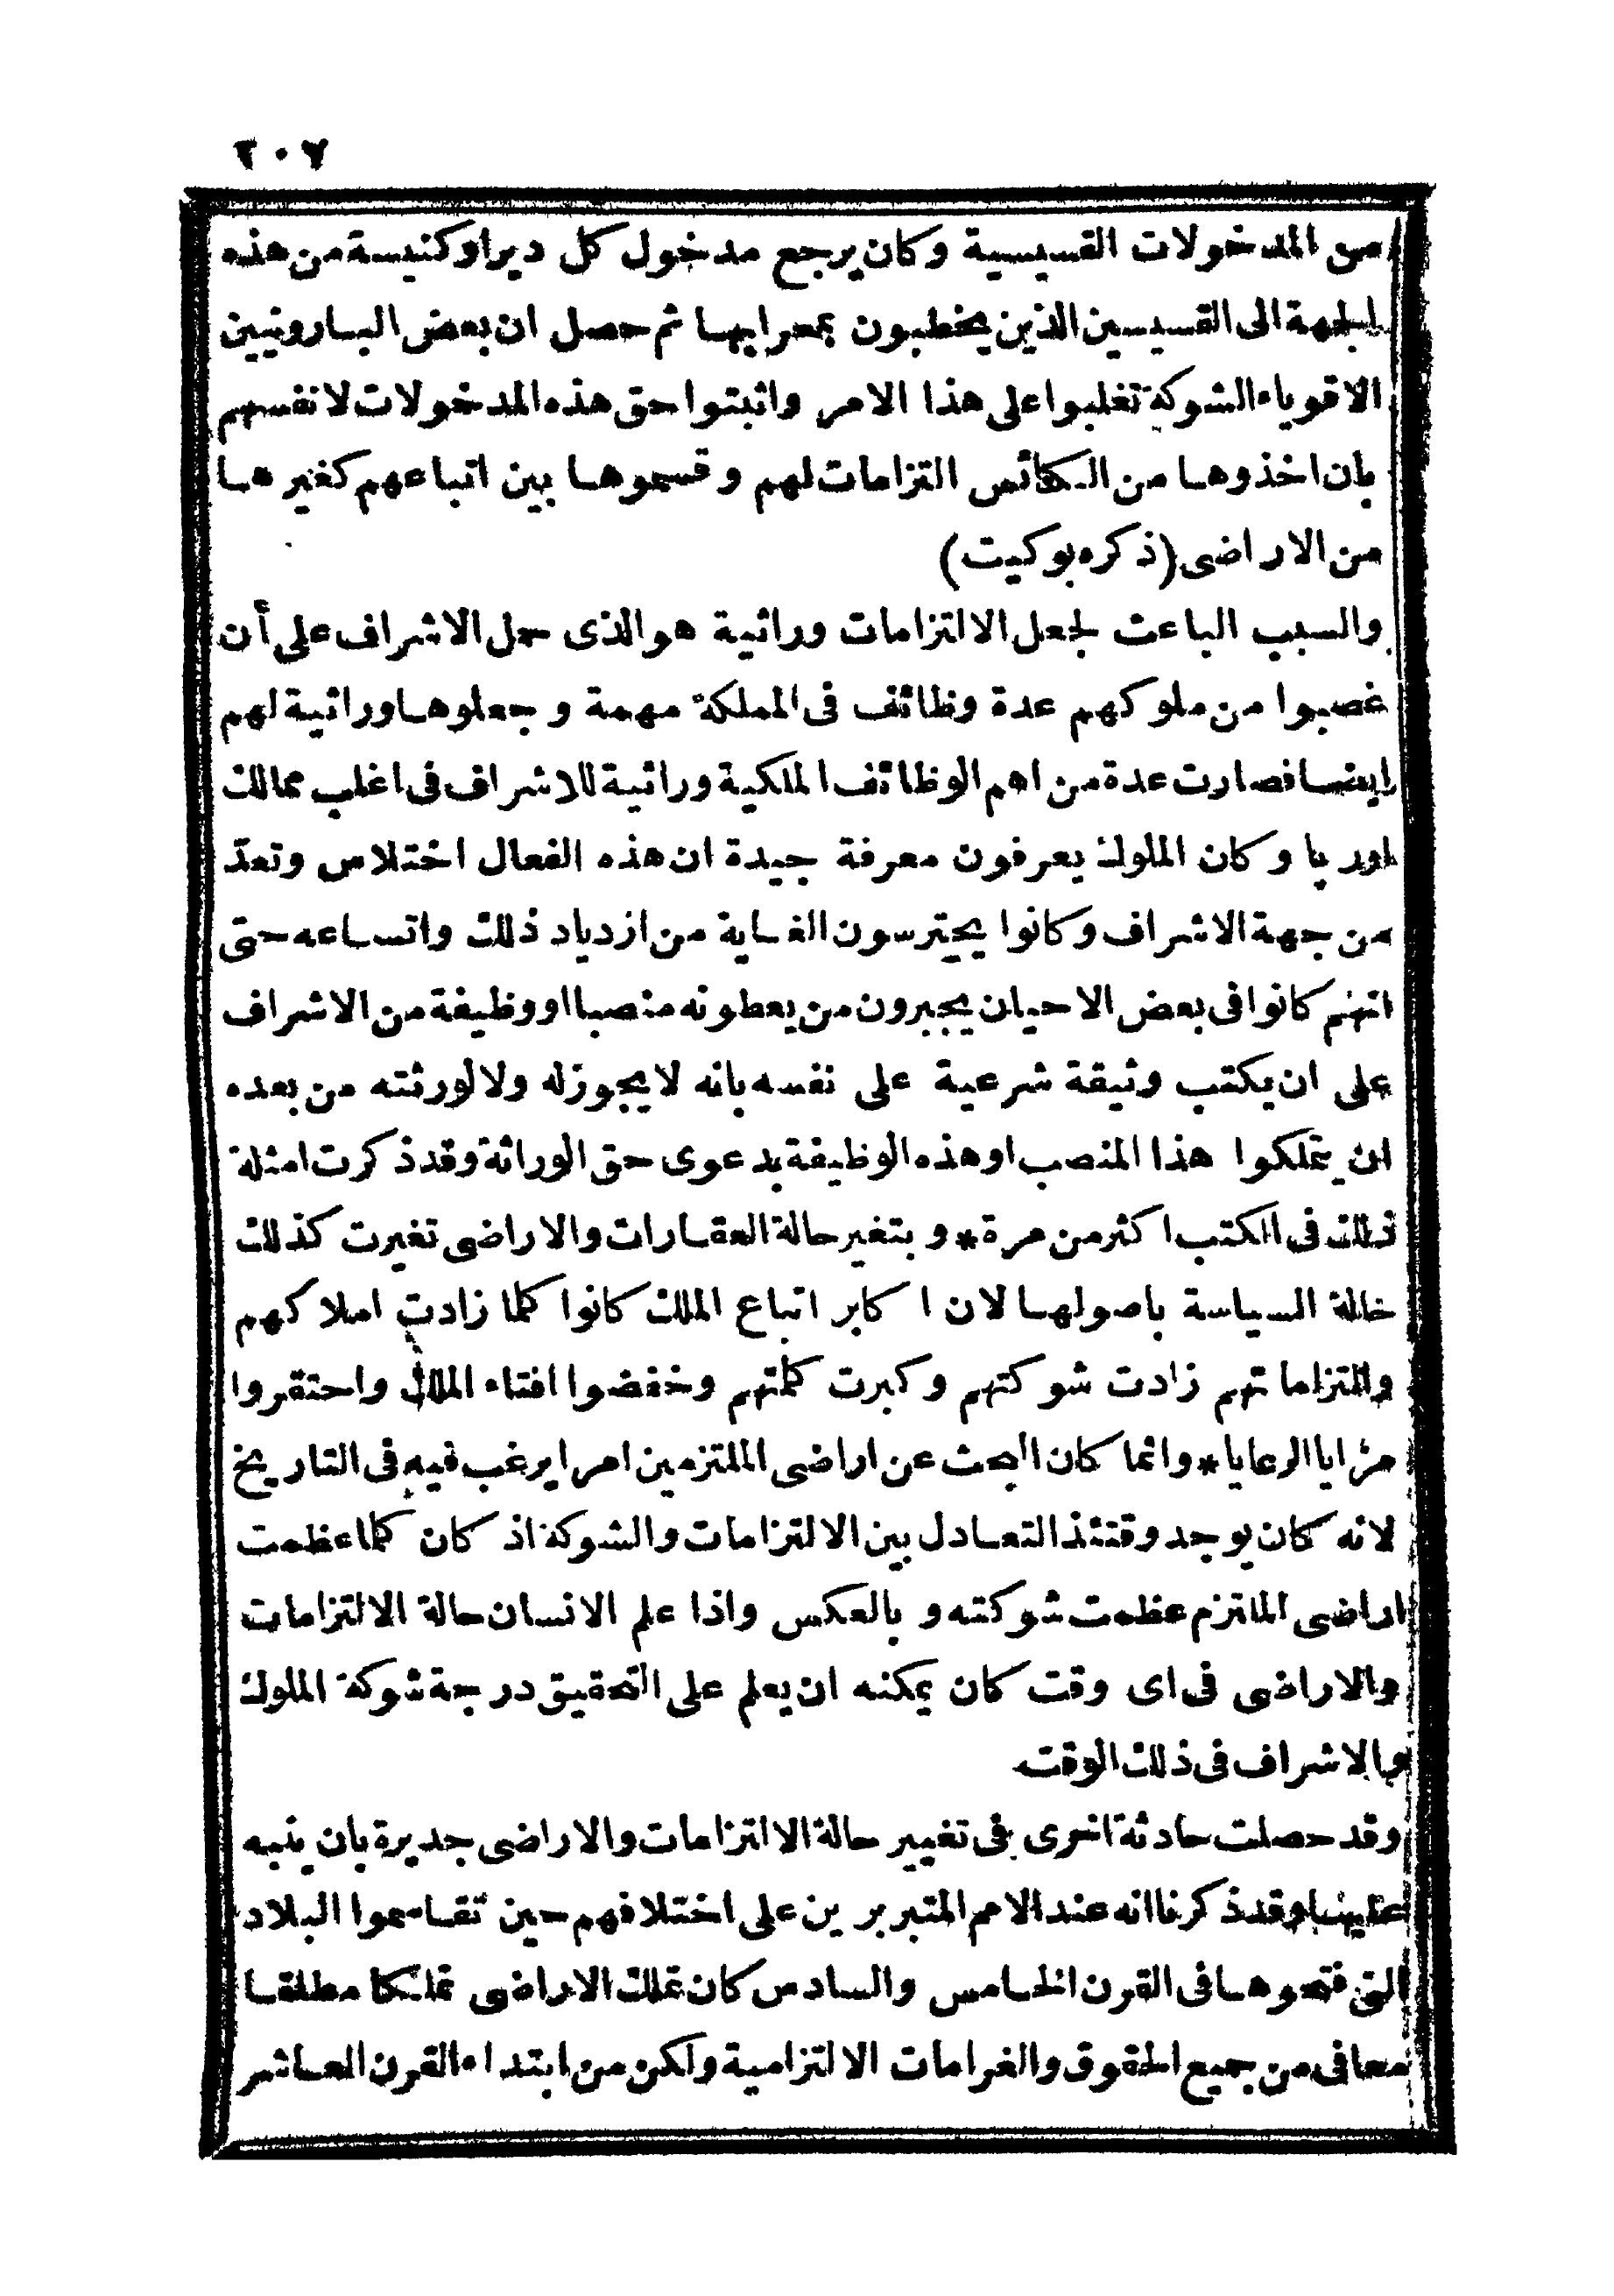 ٢٠٧
من المدخولات القسيسية وكان يرجع مدخول كل دير او كنيسة من هذه
الجهة الى القسيسين الذين يخطبون بمحرابها ثم حصل ان بعض البارونيين
الاقوياء الشوكة تغلبوا على هذا الامر واثبتوا حق هذه المدخولات لانفسهم
بان اخذوها من الكنائس التزامات لهم وقسموها بين اتباعهم كغيرها
من الاراضى (ذكره بوكيت)
والسبب الباعث لجعل الالتزامات وراثية هو الذى حمل الاشراف على أن
غصبوا من ملوكهم عدة وظائف فى المملكة مهمة وجعلوها وراثية لهم
ايضا فصارت عدة من اهم الوظائف الملكية وراثية للاشراف فى اغلب ممالك
اوربا وكان الملوك يعرفون معرفة جيدة ان هذه الفعال اختلاس وتعدّ
من جهة الاشراف وكانوا يحترسون الغاية من ازدياد ذلك واتساعه حتى
انهم كانوا فى بعض الاحيان يجبرون من يعطونه منصبا او وظيفة من الاشراف
على ان يكتب وثيقة شرعية على نفسه بانه لا يجوز له ولا لورثته من بعده
ان يتملكوا هذا المنصب او هذه الوظيفة بدعوى حق الوراثة وقد ذكرت امثلة
ذلك فى الكتب اكثر من مرة * وبتغير حالة العقارات والاراضى تغيرت كذلك
حالة السياسة باصولها لان اكابر اتباع الملك كانوا كلما زادت املاكهم
والتزاماتهم زادت شوكتهم وكبرت كلمتهم وخفضوا افتاء الملك واحتقروا
مزايا الرعايا * وانما كان البحث عن اراضى الملتزمين امرا يرغب فيه فى التاريخ
لانه كان يوجد وقتئذ التعادل بين الالتزامات والشوكة اذ كان كلما عظمت
اراضى الملتزم عظمت شوكته وبالعكس واذا علم الانسان حالة الالتزامات
والاراضى فى اى وقت كان يمكنه ان يعلم على التحقيق درجة شوكة الملوك
والاشراف فى ذلك الوقت
وقد حصلت حادثة اخرى فى تغيير حالة الالتزامات والاراضى جديرة بان ينبه
عليها وقد ذكرنا انه عند الامم المتبربرين على اختلافهم حين تقاسموا البلاد
التى فتحوها فى القرن الخامس والسادس كان تملك الاراضى تملكا مطلقا
معافى من جميع الحقوق والغرامات الالتزامية ولكن من ابتداء القرن العاشر